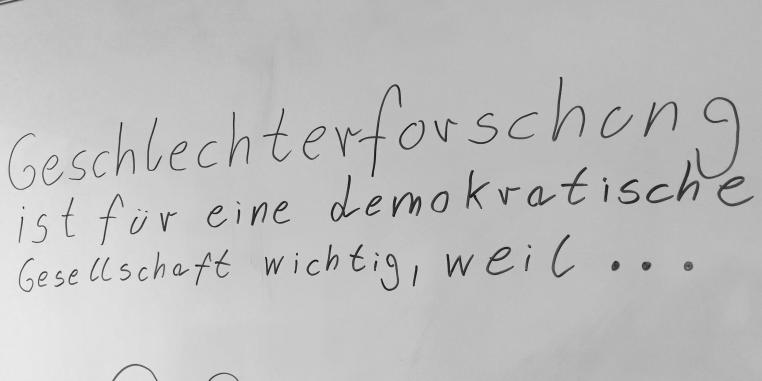 Geschlechterforschung
ist für eine demokratische
Gesellschaft wichtig, weil ...